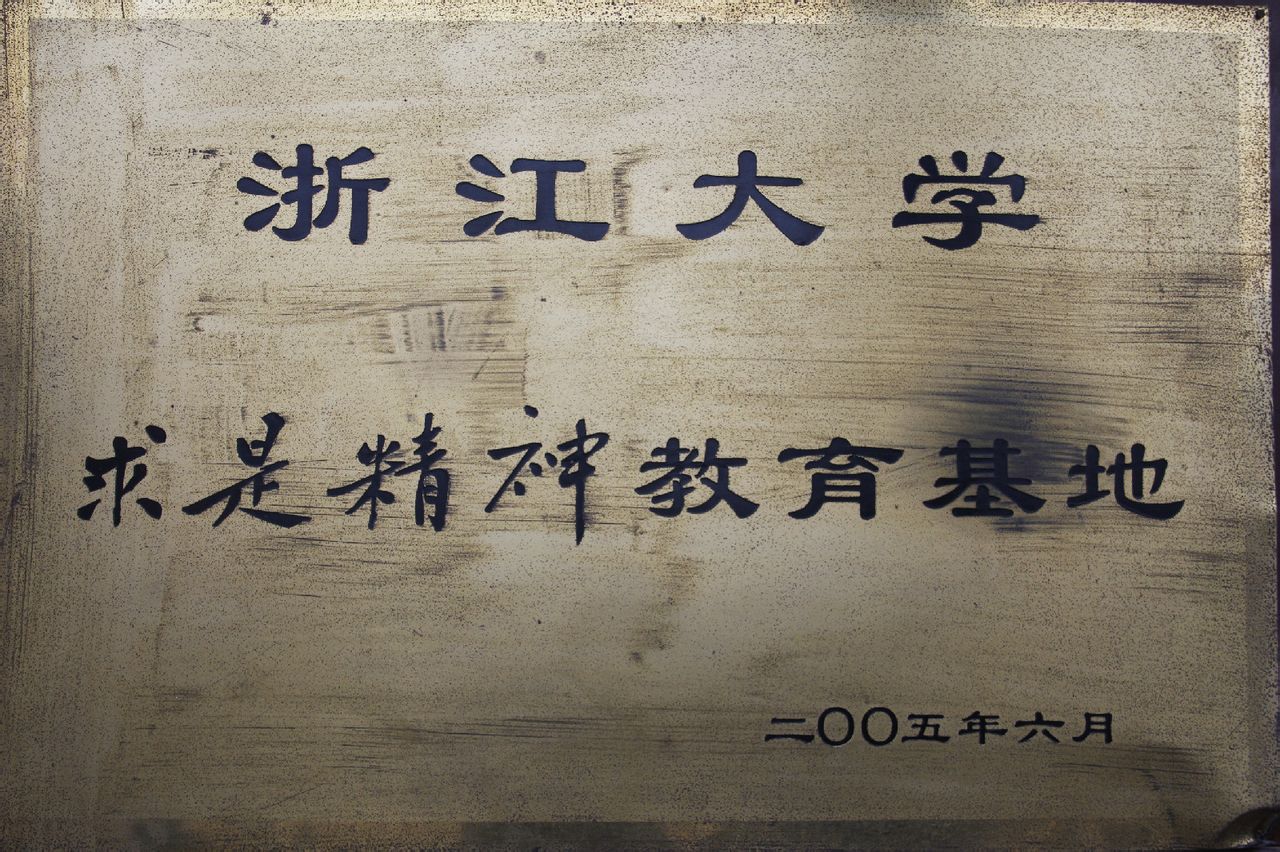 浙江大学
求是精神教育基地
二〇〇五年六月